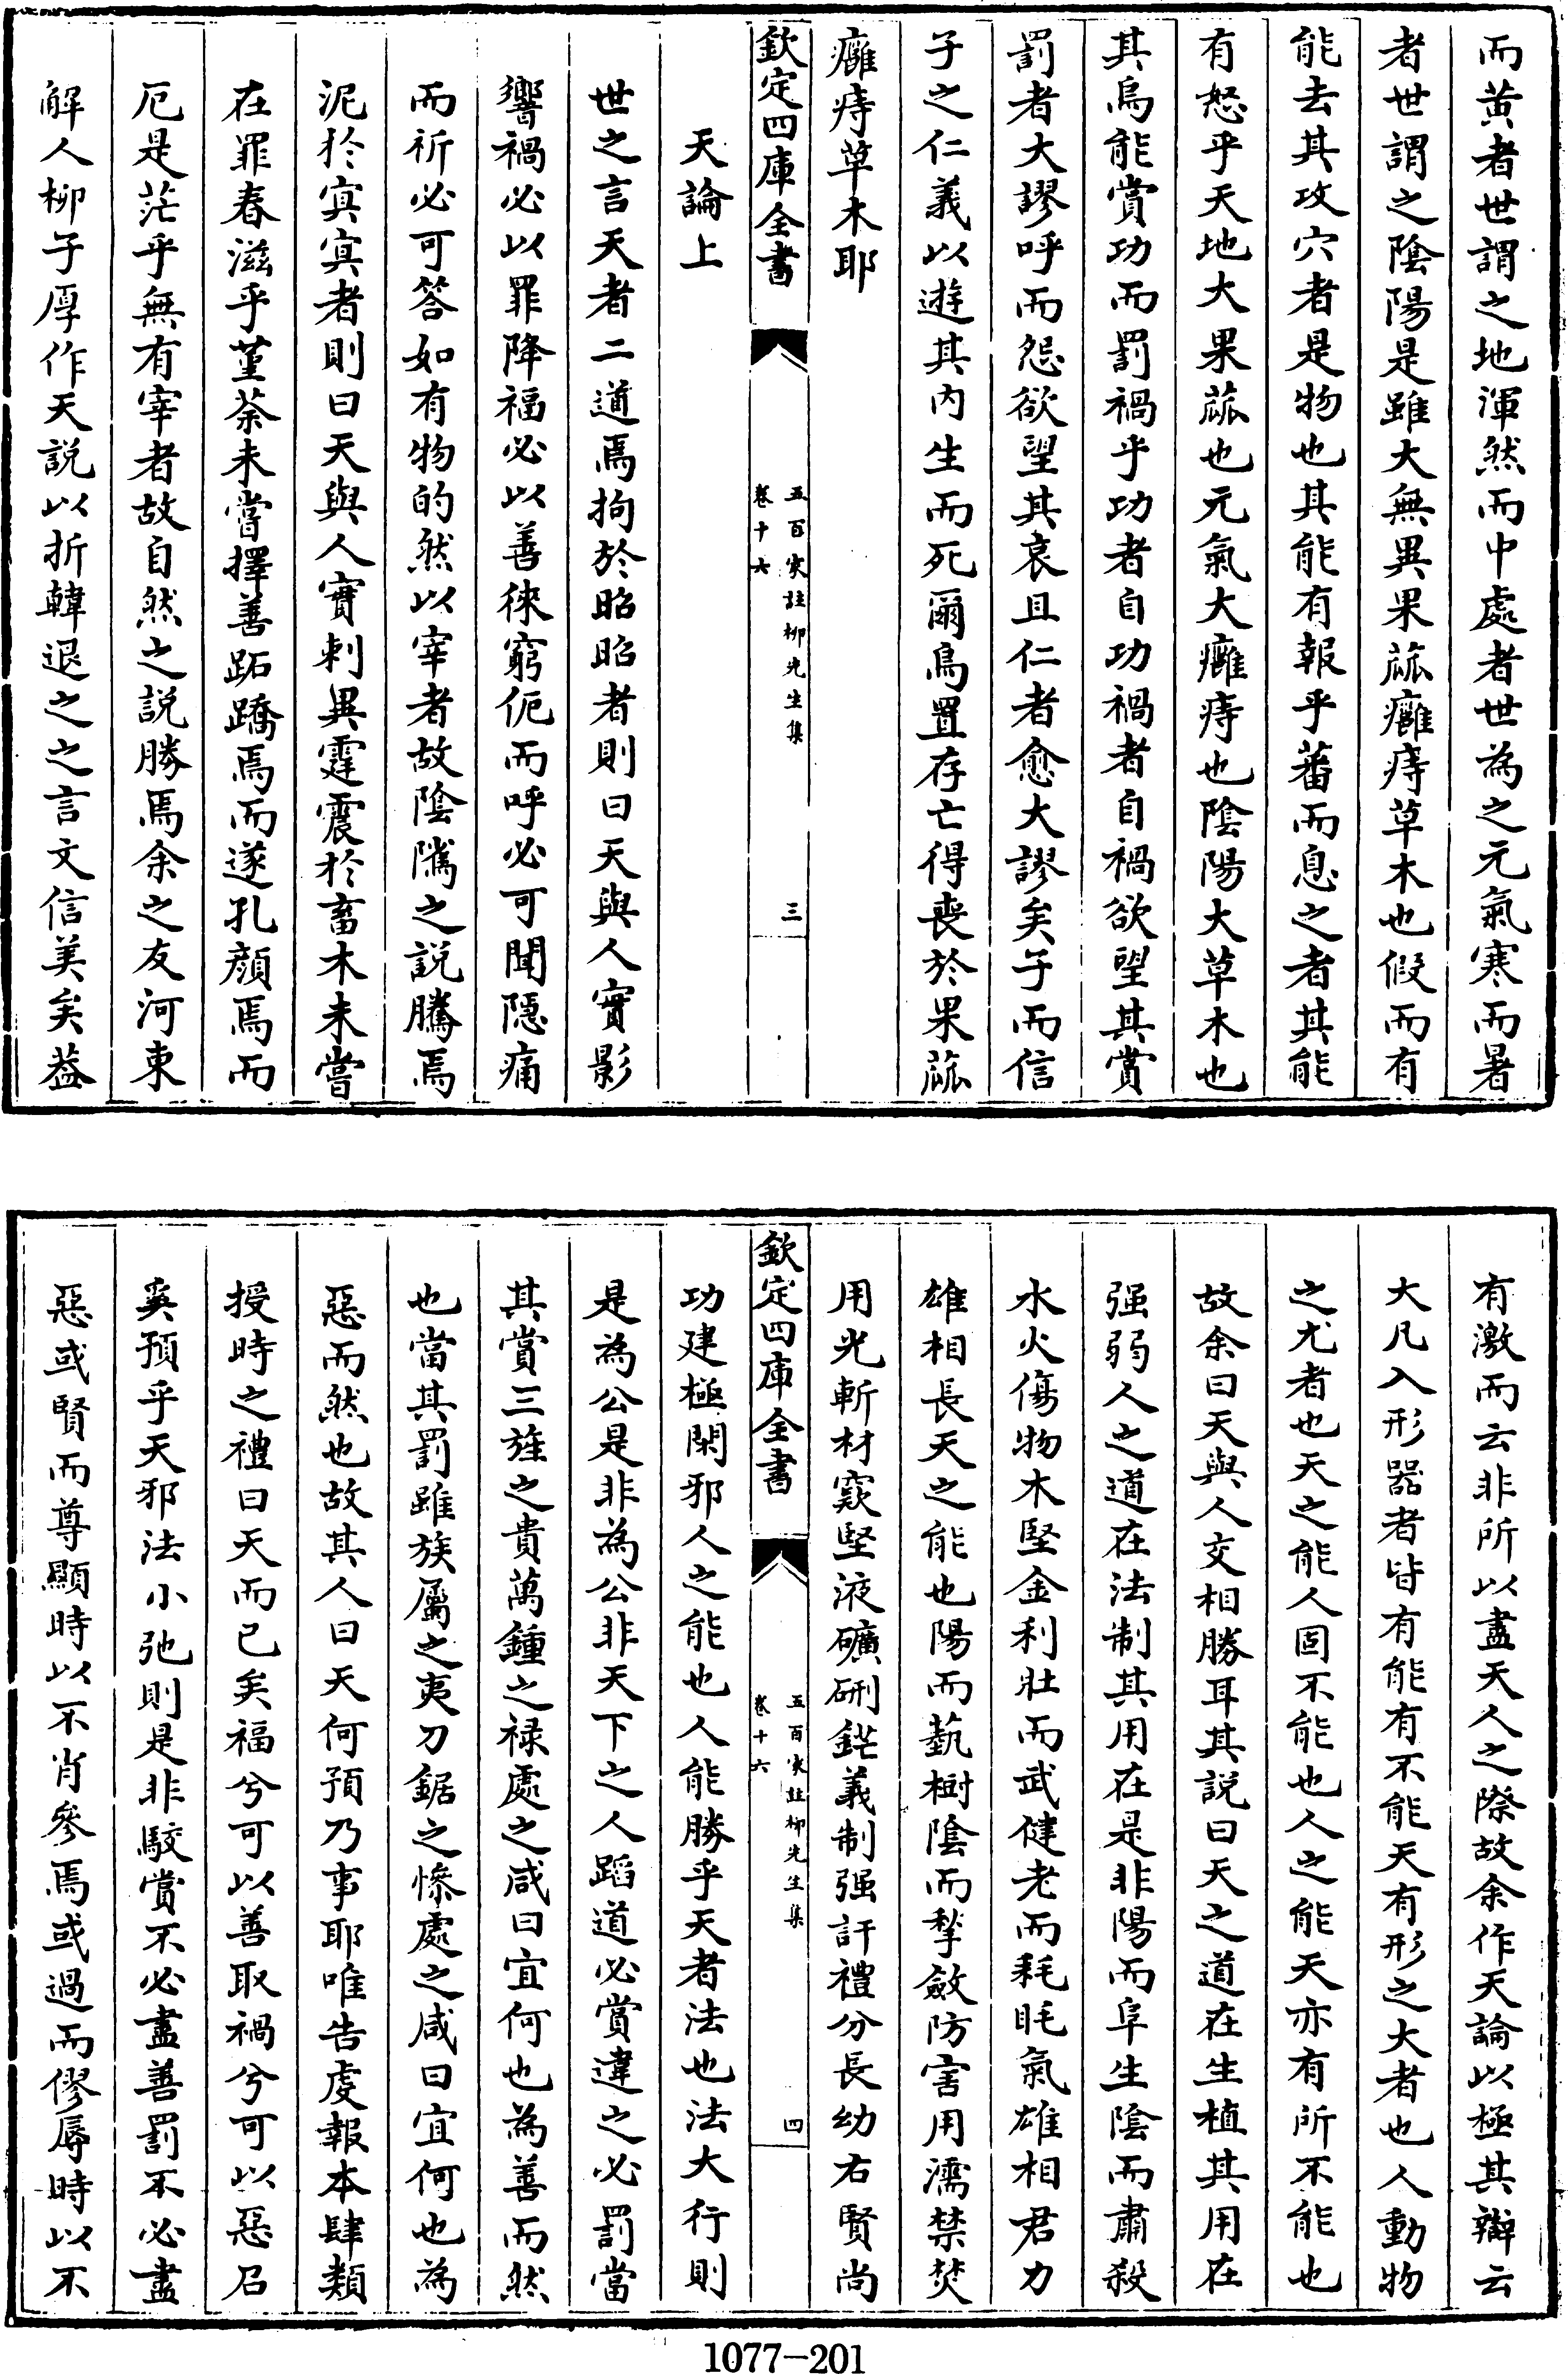 而黄者世謂之地渾然而中處者世為之元氣寒而暑
者世謂之陰陽是雖大無異果蓏癰痔草木也假而有
能去其攻穴者是物也其能有報乎蕃而息之者其能
有怒乎天地大果蓏也元氣大癰痔也陰陽大草木也
其烏能賞功而罰禍乎功者自功禍者自禍欲望其賞
罰者大謬呼而怨欲望其哀且仁者愈大謬矣子而信
子之仁義以遊其内生而死爾烏置存亡得喪於果蓏
癰痔草木耶
欽定四庫全書
五百家註柳先生集
卷十六
三
天論上
世之言天者二道焉拘於昭昭者則曰天與人實影
響禍必以罪降福必以善徠窮伌而呼必可聞隱痛
而祈必可答如有物的然以宰者故陰隲之説騰焉
泥於㝠㝠者則曰天與人實刺異霆震於畜木未嘗
在罪春滋乎菫荼未嘗擇善跖蹻焉而遂孔顔焉而
厄是茫乎無有宰者故自然之説勝焉余之友河東
解人柳子厚作天説以折韓退之之言文信美矣葢
有激而云非所以盡天人之際故余作天論以極其辯云
大凡入形器者皆有能有不能天有形之大者也人動物
之尤者也天之能人固不能也人之能天亦有所不能也
故余曰天與人交相勝耳其説曰天之道在生植其用在
强弱人之道在法制其用在是非陽而阜生陰而肅殺
水火傷物木堅金利壯而武健老而耗眊氣雄相君力
雄相長天之能也陽而蓺樹陰而揫斂防害用濡禁焚
用光斬材窾堅液礦硎鋩義制强訐禮分長幼右賢尚
欽定四庫全書
五百家註柳先生集
卷十六
四
功建極閑邪人之能也人能勝乎天者法也法大行則
是為公是非為公非天下之人蹈道必賞違之必罰當
其賞三旌之貴萬鍾之禄處之咸曰宜何也為善而然
也當其罰雖族屬之夷刀鋸之慘處之咸曰宜何也為
惡而然也故其人曰天何預乃事耶唯告虔報本肆類
授時之禮曰天而已矣福兮可以善取禍兮可以惡召
奚預乎天邪法小弛則是非駮賞不必盡善罰不必盡
惡或賢而尊顯時以不肖參焉或過而僇辱時以不
1077-201